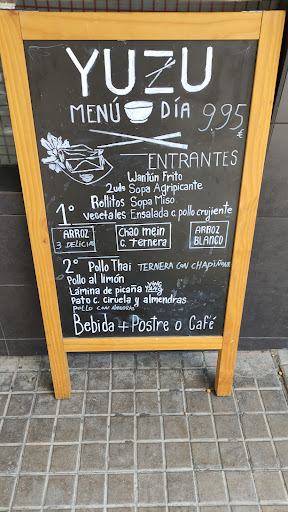 YUZU
MENÚ DÍA 9,95 €
ENTRANTES
Wantún Frito
2uds Sopa Agripicante
Rollitos Sopa Miso
1º vegetales Ensalada c. pollo crujiente
ARROZ 3 DELICIAS
Chao mein c. ternera
ARROZ BLANCO
2º Pollo Thai TERNERA CON CHAPIÑONE
Pollo al limón
Lámina de picaña
Pato c. ciruela y almendras
POLLO CON
Bebida + Postre o Café